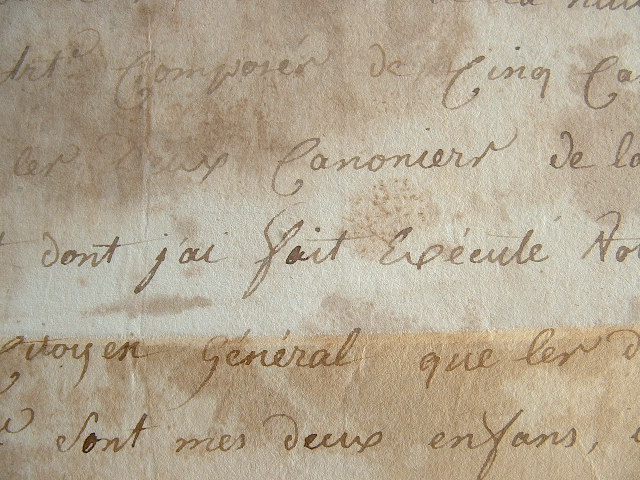 de la
Art.e Composés de Cinq Ca
les deux Canoniers de la
dont j'ai fait Exécuté
Citoyen Général que les d
Sont mes deux enfans,